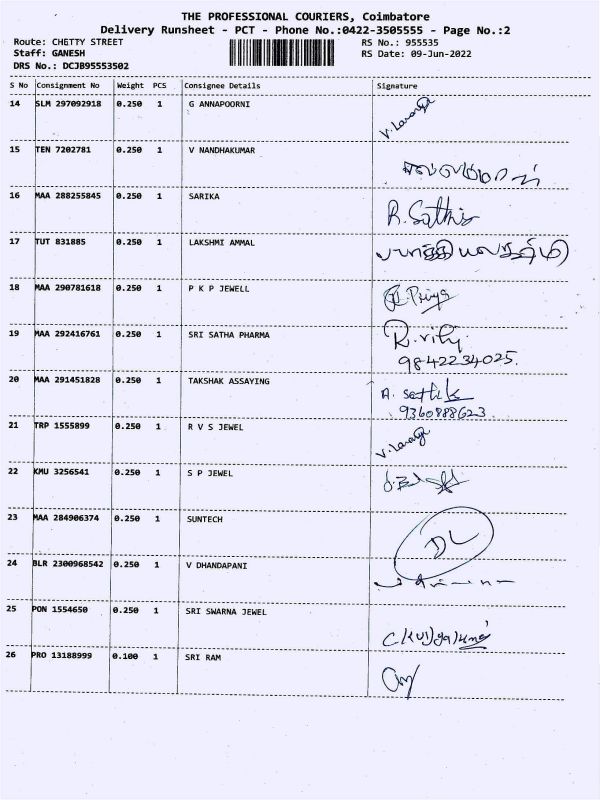 THE PROFESSIONAL COURIERS, Coimbatore
Delivery Runsheet - PCT - Phone No.:0422-3505555 - Page No.:2
Route: CHETTY STREET RS No.: 955535
Staff: GANESH RS Date: 09-Jun-2022
DRS No.: DCJB95553502
S No Consignment No Weight PCS Consignee Details Signature
14 SLM 297092918 0.250 1 G ANNAPOORNI
15 TEN 7202781 0.250 1 V NANDHAKUMAR
16 MAA 288255845 0.250 1 SARIKA R. Sathis
17 TUT 831885 0.250 1 LAKSHMI AMMAL
18 MAA 290781618 0.250 1 P K P JEWELL Priya
19 MAA 292416761 0.250 1 SRI SATHA PHARMA
9842234025.
20 MAA 291451828 0.250 1 TAKSHAK ASSAYING
9360888623
21 TRP 1555899 0.250 1 R V S JEWEL
22 KMU 3256541 0.250 1 S P JEWEL
23 MAA 284906374 0.250 1 SUNTECH DL
24 BLR 2300968542 0.250 1 V DHANDAPANI
25 PON 1554650 0.250 1 SRI SWARNA JEWEL
26 PRO 13188999 0.100 1 SRI RAM